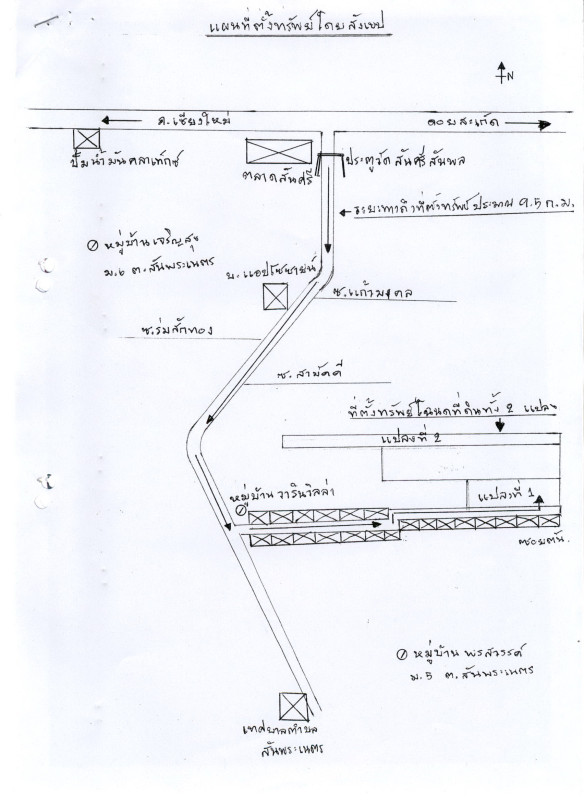 แผนที่ตั้งทรัพย์โดยสังเขป
N
จ.เชียงใหม่
ดอยสะเก็ด
ปั้มน้ำมันคลาเท็กซ์
ตลาดสันศรี
ประตูวัดสันศรีสันพล
ระยะทางถึงที่ตั้งทรัพย์ประมาณ 9.5 ก.ม.
หมู่บ้านเจริญสุข
ม.6 ต.สันพระเนตร
บ.แอปโซซายน์
ซ.แก้วมงคล
ซ.ร่มสักทอง
ซ.สามัคคี
ที่ตั้งทรัพย์โฉนดที่ดินทั้ง 2 แปลง
แปลงที่ 2
หมู่บ้านวารินวิลล่า
แปลงที่ 1
ซอยตัน
หมู่บ้านพรสวรรค์
ม.5 ต.สันพระเนตร
เทศบาลตำบล
สันพระเนตร